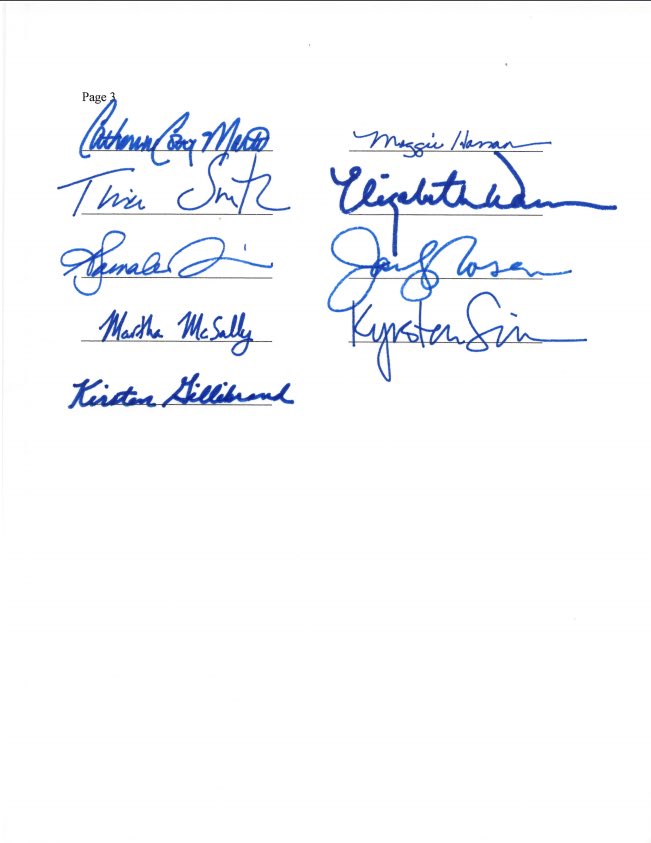 Page 3
Catherine Cortez Masto
Maggie Hassan
Tina Smith
Elizabeth Warren
Kamala
Jacky Rosen
Martha McSally
Kyrsten Sin
Kirsten Gillibrand